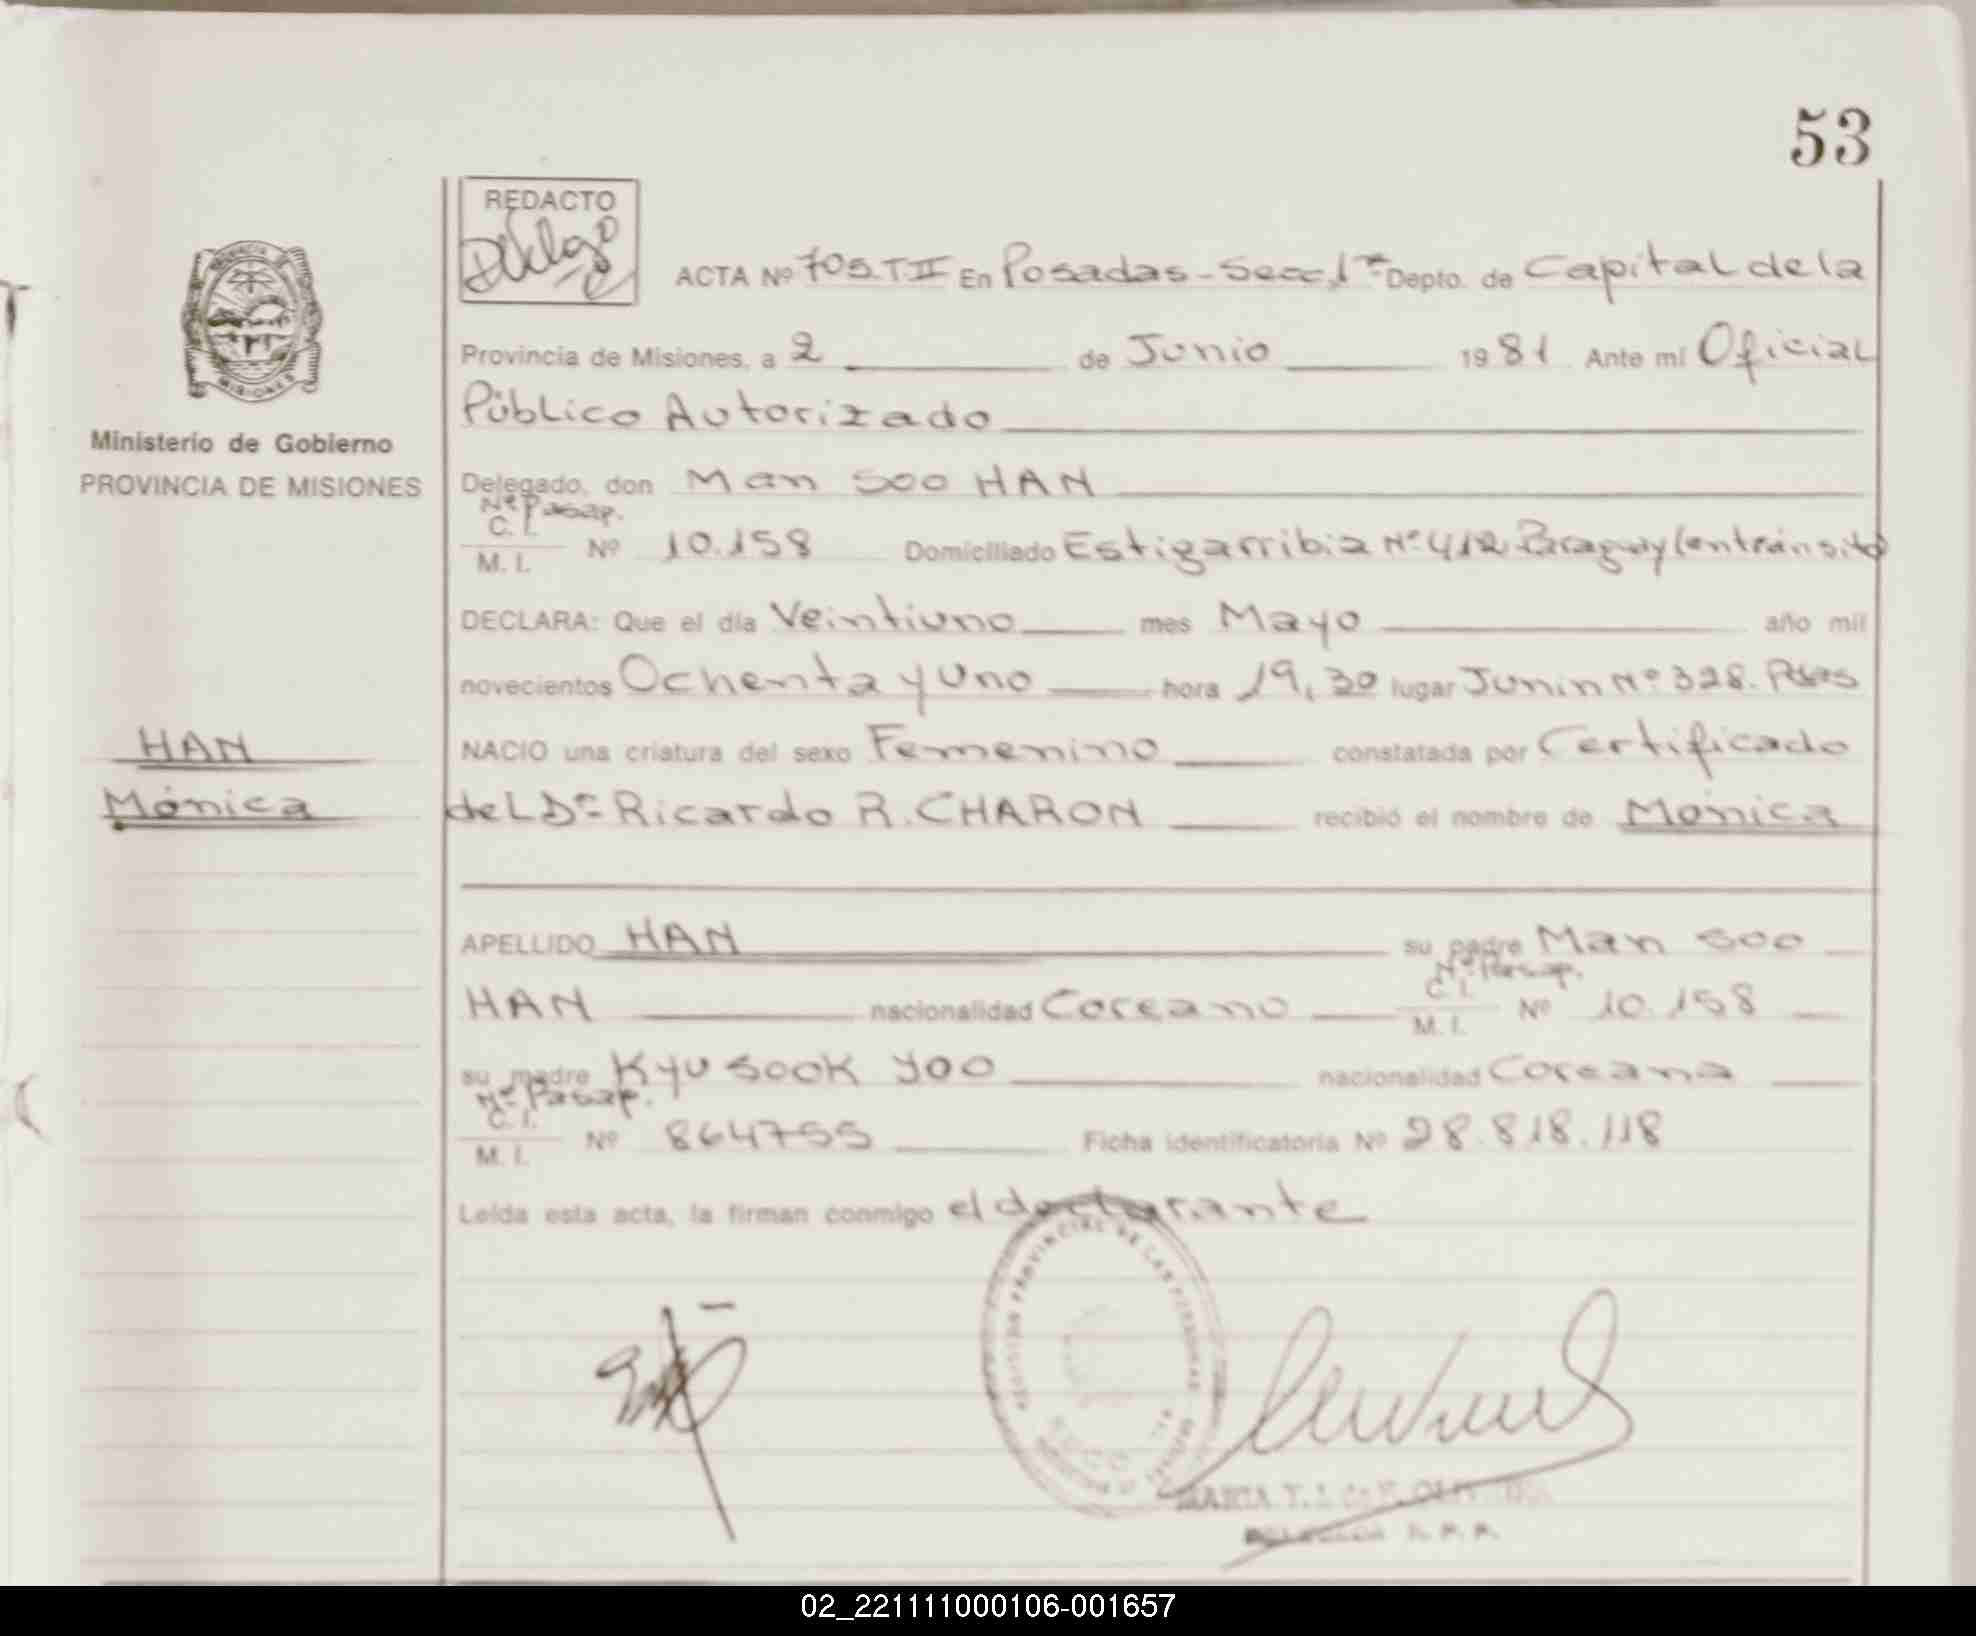 53
REDACTO
ACTA Nº 705.T II En Posadas - Secc, 1ra Depto. de Capital de la
Provincia de Misiones, a 2 de Junio 1981 Ante mí Oficial
Público Autorizado
Delegado, don Man Soo HAN
Nº Pasap.
C. I.
M. I. Nº 10.158 Domiciliado Estigarribia Nº 412 Paraguay (en tránsito
DECLARA: Que el día Veintiuno mes Mayo año mil
novecientos Ochenta y Uno hora 19,30 lugar Junin Nº 328. Pdas
NACIO una criatura del sexo Femenino constatada por Certificado
del Dr Ricardo R. CHARON recibió el nombre de Mónica
APELLIDO HAN su padre Man Soo
Nº Pasap.
C. I.
HAN nacionalidad Coreano M. I. Nº 10.158
su madre Kyu Sook Yoo nacionalidad Coreana
Nº Pasap.
C. I.
M. I. Nº 864755 Ficha identificatoria Nº 28.818.118
Leída esta acta, la firman conmigo el declarante
PROVINCIA DE
MISIONES
Ministerio de Gobierno
PROVINCIA DE MISIONES
HAN
Mónica
PROVINCIAL DE LAS PERSONAS
02_221111000106-001657